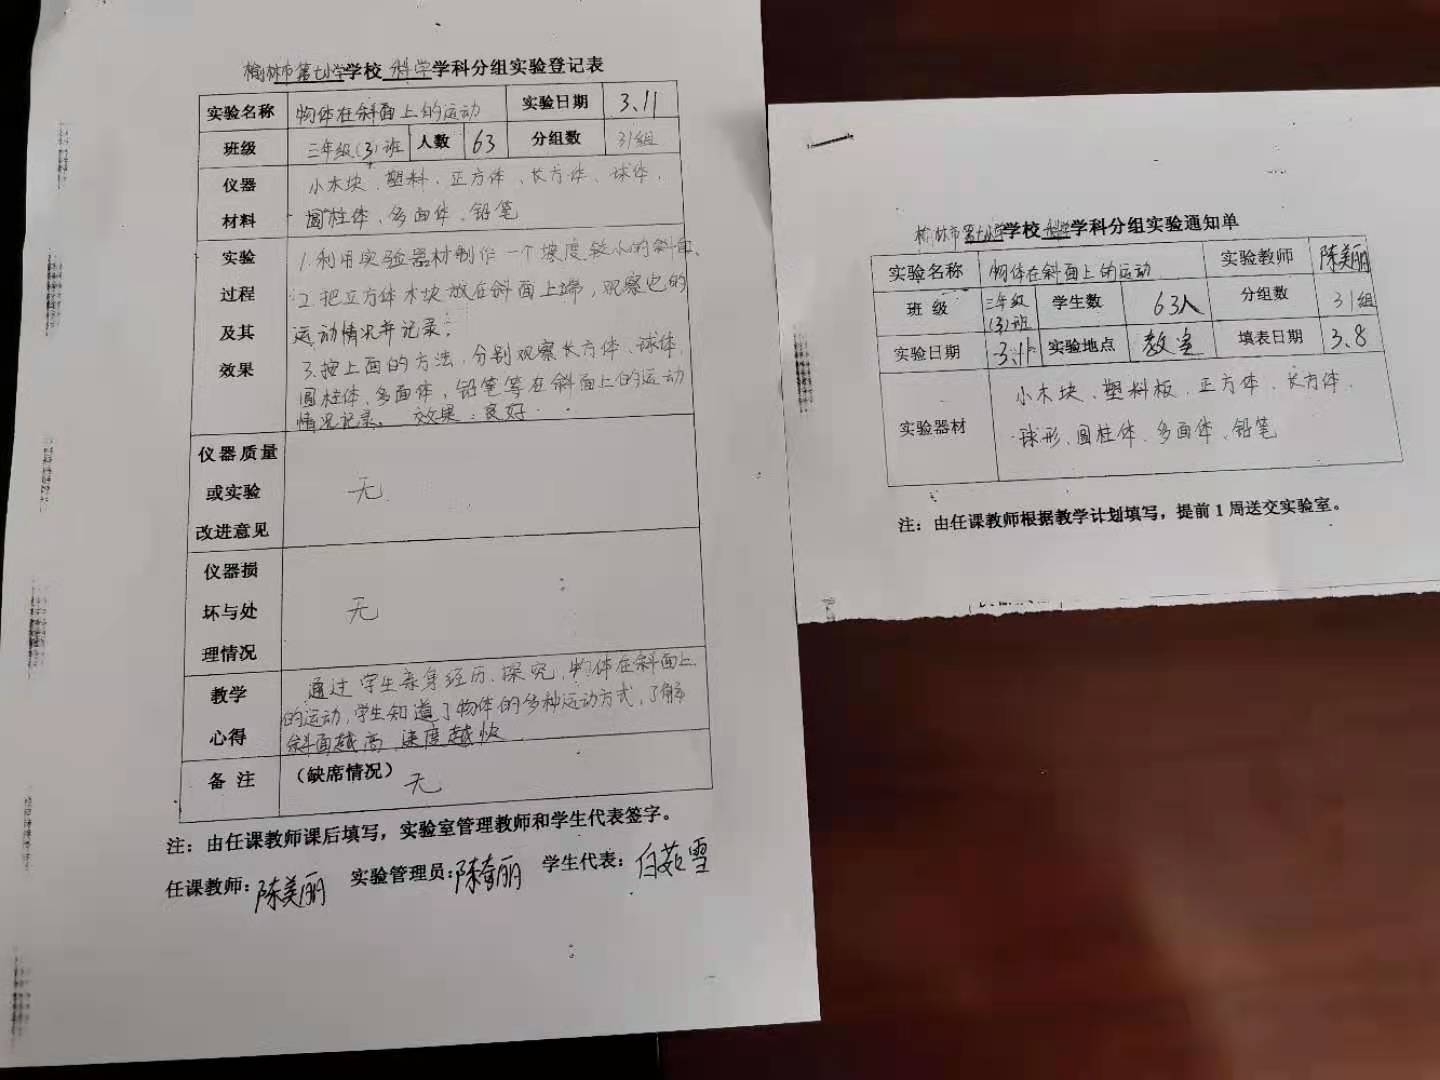 榆林市第七小学学校 科学 学科分组实验登记表
实验名称 物体在斜面上的运动 实验日期 3.11
班级 三年级(3)班 人数 63 分组数 31组
仪器 小木块、塑料、正方体、长方体、球体、
材料 圆柱体、多面体、铅笔
实验 1.利用实验器材制作一个坡度较小的斜面、
过程 2.把立方体木块放在斜面上端,观察它的
及其 运动情况并记录。
效果 3.按上面的方法,分别观察长方体、球体、
圆柱体、多面体,铅笔等在斜面上的运动
情况记录。 效果:良好
仪器质量
或实验 无
改进意见
仪器损
坏与处 无
理情况
教学 通过学生亲身经历、探究,物体在斜面上
的运动,学生知道了物体的多种运动方式,了解
心得 斜面越高,速度越快
备 注 (缺席情况) 无
注:由任课教师课后填写,实验室管理教师和学生代表签字。
任课教师:陈美丽 实验管理员:陈美丽 学生代表:白茹雪
榆林市第七小学学校 科学 学科分组实验通知单
实验名称 物体在斜面上的运动 实验教师 陈美丽
班 级 三年级(3)班 学生数 63人 分组数 31组
实验日期 3.11 实验地点 教室 填表日期 3.8
小木块、塑料板、正方体、长方体、
实验器材 球形、圆柱体、多面体、铅笔
注:由任课教师根据教学计划填写,提前1周送交实验室。